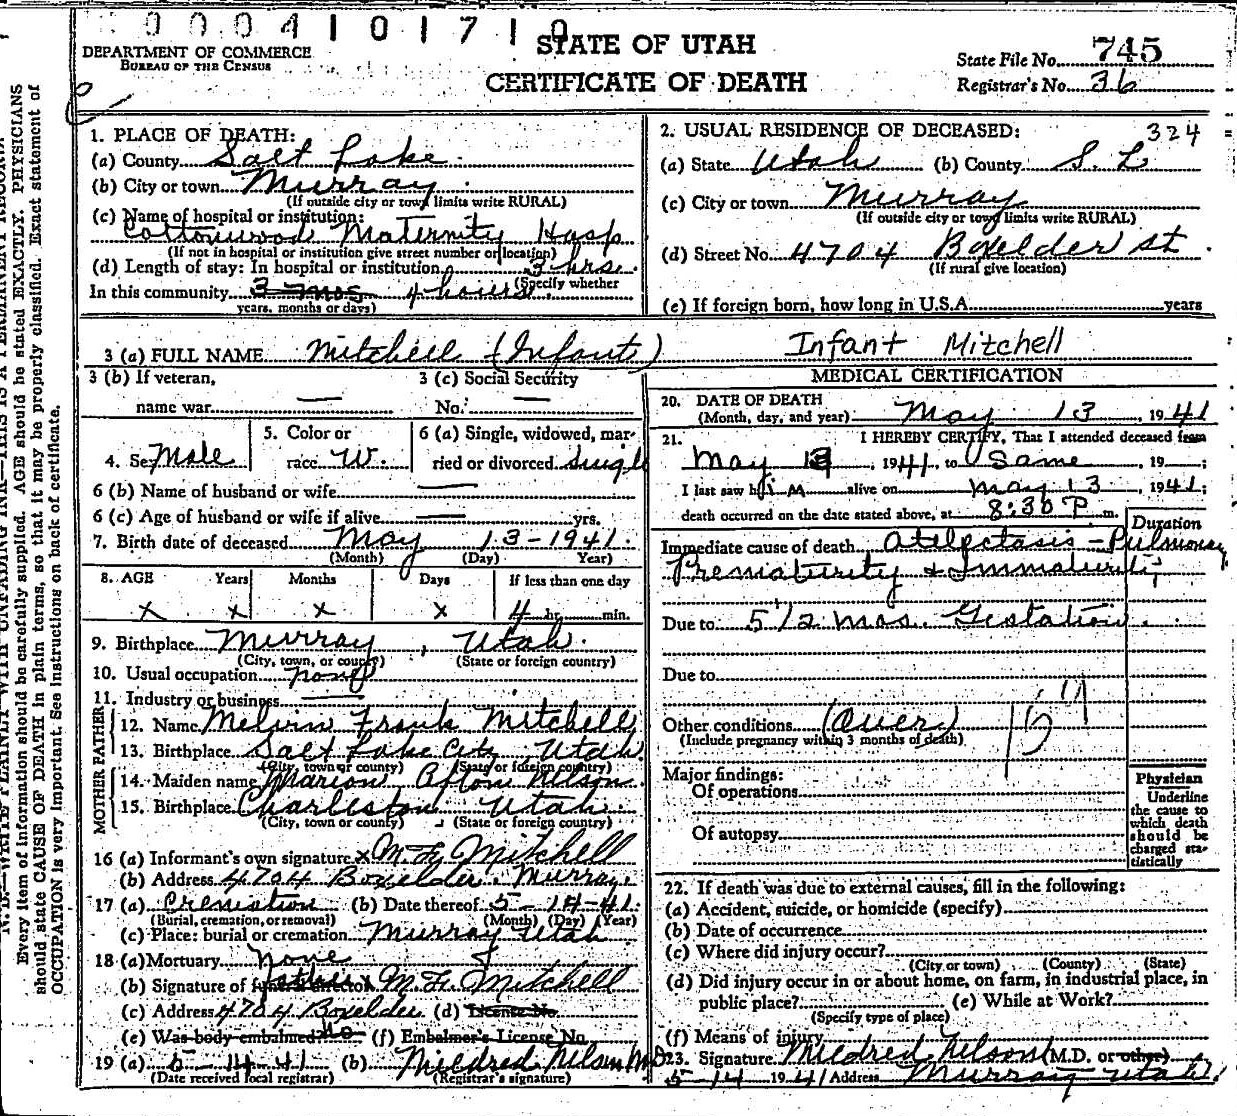 0004101710
STATE OF UTAH
CERTIFICATE OF DEATH
DEPARTMENT OF COMMERCE
BUREAU OF THE CENSUS
State File No. 745
Registrar's No. 36
Every item of information should be carefully supplied. AGE should be stated EXACTLY. PHYSICIANS
should state CAUSE OF DEATH in plain terms, so that it may be properly classified. Exact statement of
OCCUPATION is very important. See instructions on back of certificate.
1. PLACE OF DEATH:
(a) County Salt Lake
(b) City or town Murray
(If outside city or town limits write RURAL)
(c) Name of hospital or institution:
Cottonwood Maternity Hosp
(If not in hospital or institution give street number or location)
(d) Length of stay: In hospital or institution 3 hrs.
(Specify whether
In this community 3 mos 4 hours.
years, months or days)
2. USUAL RESIDENCE OF DECEASED: 324
(a) State Utah (b) County S. L
(c) City or town Murray
(If outside city or town limits write RURAL)
(d) Street No. 4704 Boxelder St.
(If rural give location)
(e) If foreign born, how long in U.S.A. years
3 (a) FULL NAME Mitchell (Infant) Infant Mitchell
3 (b) If veteran,
name war —
3 (c) Social Security
No. —
4. Sex Male
5. Color or
race W.
6 (a) Single, widowed, mar-
ried or divorced Single
6 (b) Name of husband or wife —
6 (c) Age of husband or wife if alive — yrs.
7. Birth date of deceased May 13-1941.
(Month) (Day) Year)
8. AGE Years Months Days If less than one day
x x x x 4 hr. min.
9. Birthplace Murray, Utah.
(City, town, or county) (State or foreign country)
10. Usual occupation none
11. Industry or business —
FATHER
12. Name Melvin Frank Mitchell
13. Birthplace Salt Lake City, Utah
(City, town or county) (State or foreign country)
MOTHER
14. Maiden name Marion Afton Nelson
15. Birthplace Charleston Utah
(City, town or county) (State or foreign country)
16 (a) Informant's own signature x M. F. Mitchell
(b) Address 4704 Boxelder. Murray.
17 (a) Cremation (b) Date thereof 5-14-41.
(Burial, cremation, or removal) (Month) (Day) (Year)
(c) Place: burial or cremation Murray Utah
18 (a) Mortuary None
(b) Signature of funeral director father x M. F. Mitchell
(c) Address 4704 Boxelder (d) License No.
(e) Was body embalmed? No (f) Embalmer's License No.
19 (a) 5-14-41 (b) Mildred Nelson M.D.
(Date received local registrar) (Registrar's signature)
MEDICAL CERTIFICATION
20. DATE OF DEATH
(Month, day, and year) May 13, 1941
21. I HEREBY CERTIFY, That I attended deceased from
May 13, 1941, to Same, 19 ;
I last saw him alive on May 13 1941;
death occurred on the date stated above, at 8:30 P. m.
Duration
Immediate cause of death Atelectasis - Pulmonary
Prematurity + Immaturity
Due to 5 1/2 mos. Gestation.
Due to
Other conditions (Over)
(Include pregnancy within 3 months of death)
Major findings:
Of operations
Of autopsy
Physician
Underline
the cause to
which death
should be
charged sta-
tistically
22. If death was due to external causes, fill in the following:
(a) Accident, suicide, or homicide (specify)
(b) Date of occurrence
(c) Where did injury occur?
(City or town) (County) (State)
(d) Did injury occur in or about home, on farm, in industrial place, in
public place? (e) While at Work?
(Specify type of place)
(f) Means of injury
23. Signature Mildred Nelson (M.D. or other)
5-14 1941 Address Murray Utah